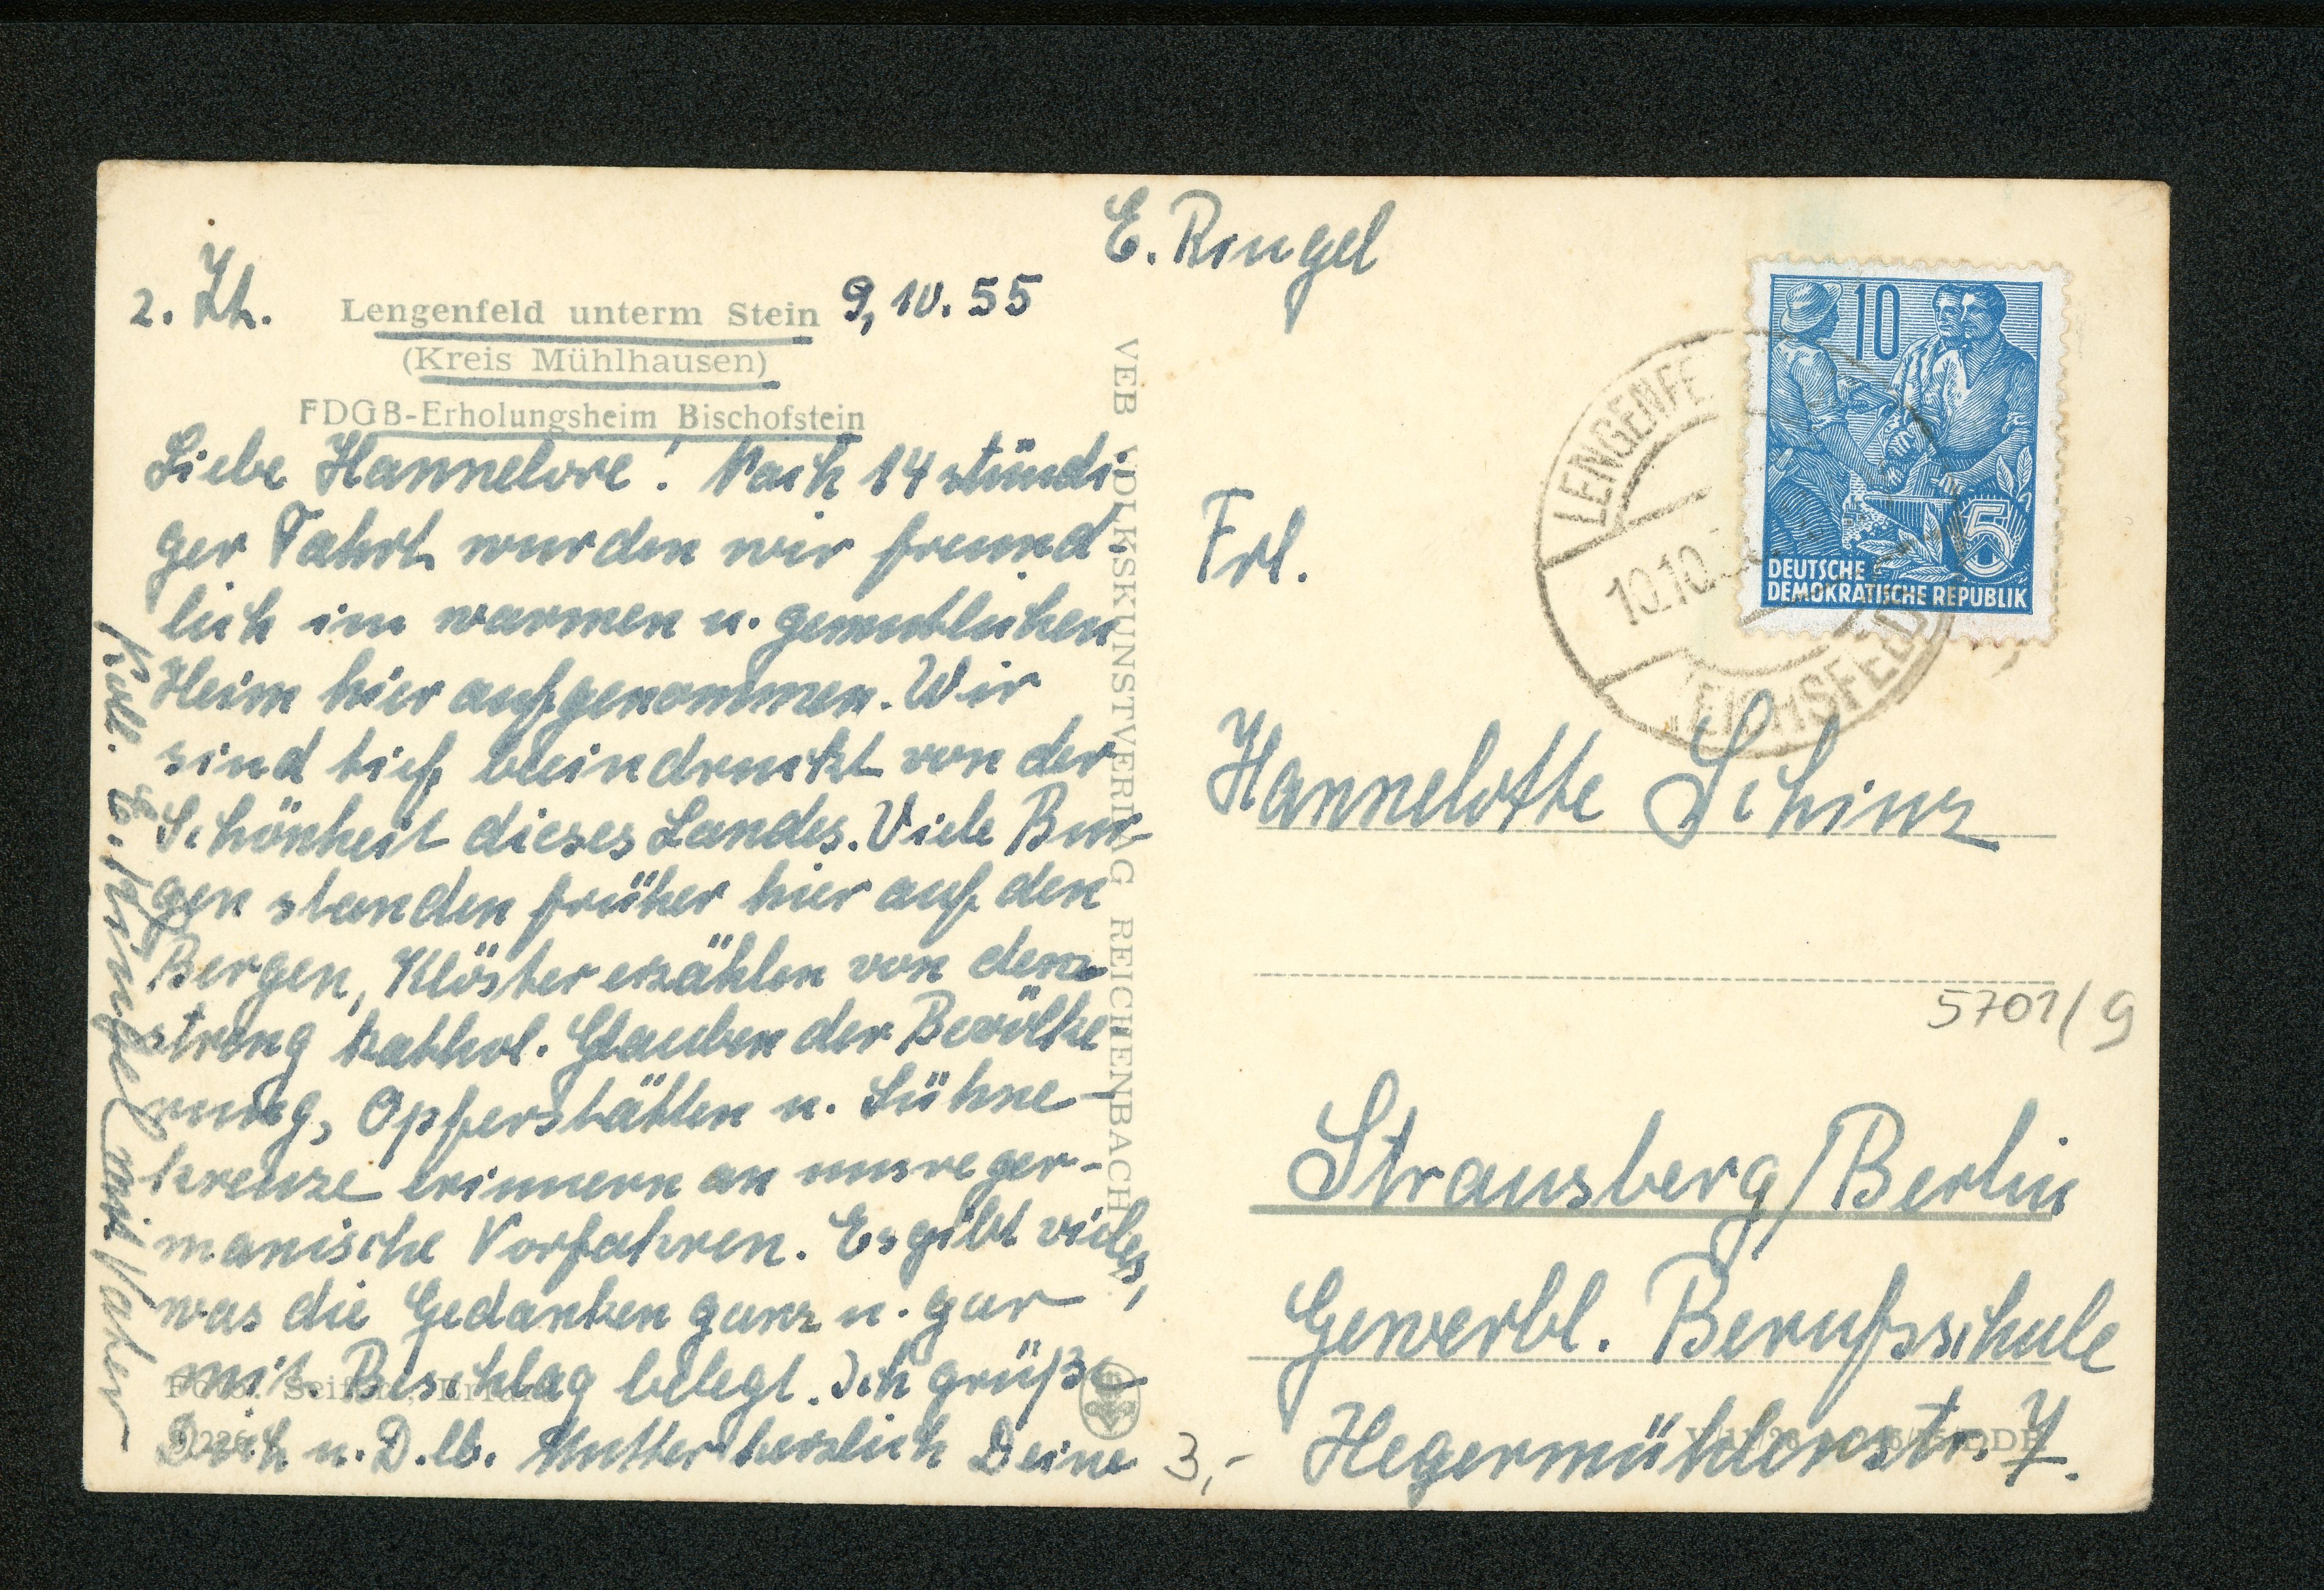 E. Ringel
2. Zh.
Lengenfeld unterm Stein 9,10.55
(Kreis Mühlhausen)
FDGB-Erholungsheim Bischofstein
Liebe Hannelore! Nach 14 stündi-
ger Fahrt wurden wir freund-
lich im warmen u. gemütlichen
Heim hier aufgenommen. Wir
sind tief beeindruckt von der
Schönheit dieses Landes. Viele Bur-
gen standen früher hier auf den
Bergen, Klöster erzählen von dem
streng kathol. Glauben der Bevölke
rung, Opferstätten u. Sühne-
kreuze erinnern an unsre ger-
manische Vorfahren. Es gibt vieles,
was die Gedanken ganz u. gar
mit Beschlag belegt. Ich grüße
Dich u. D. lb. Mutter herzlich Deine
Koll. E. Ringel mit Vater
VEB VOLKSKUNSTVERLAG REICHENBACH
10
5
DEUTSCHE
DEMOKRATISCHE REPUBLIK
LENGENFE
10.10.5
EICHSFELD
Frl.
Hannelotte Schinz
5701/9
Strausberg/Berlin
Gewerbl. Berufsschule
Hegermühlenstr. 7.
3,-